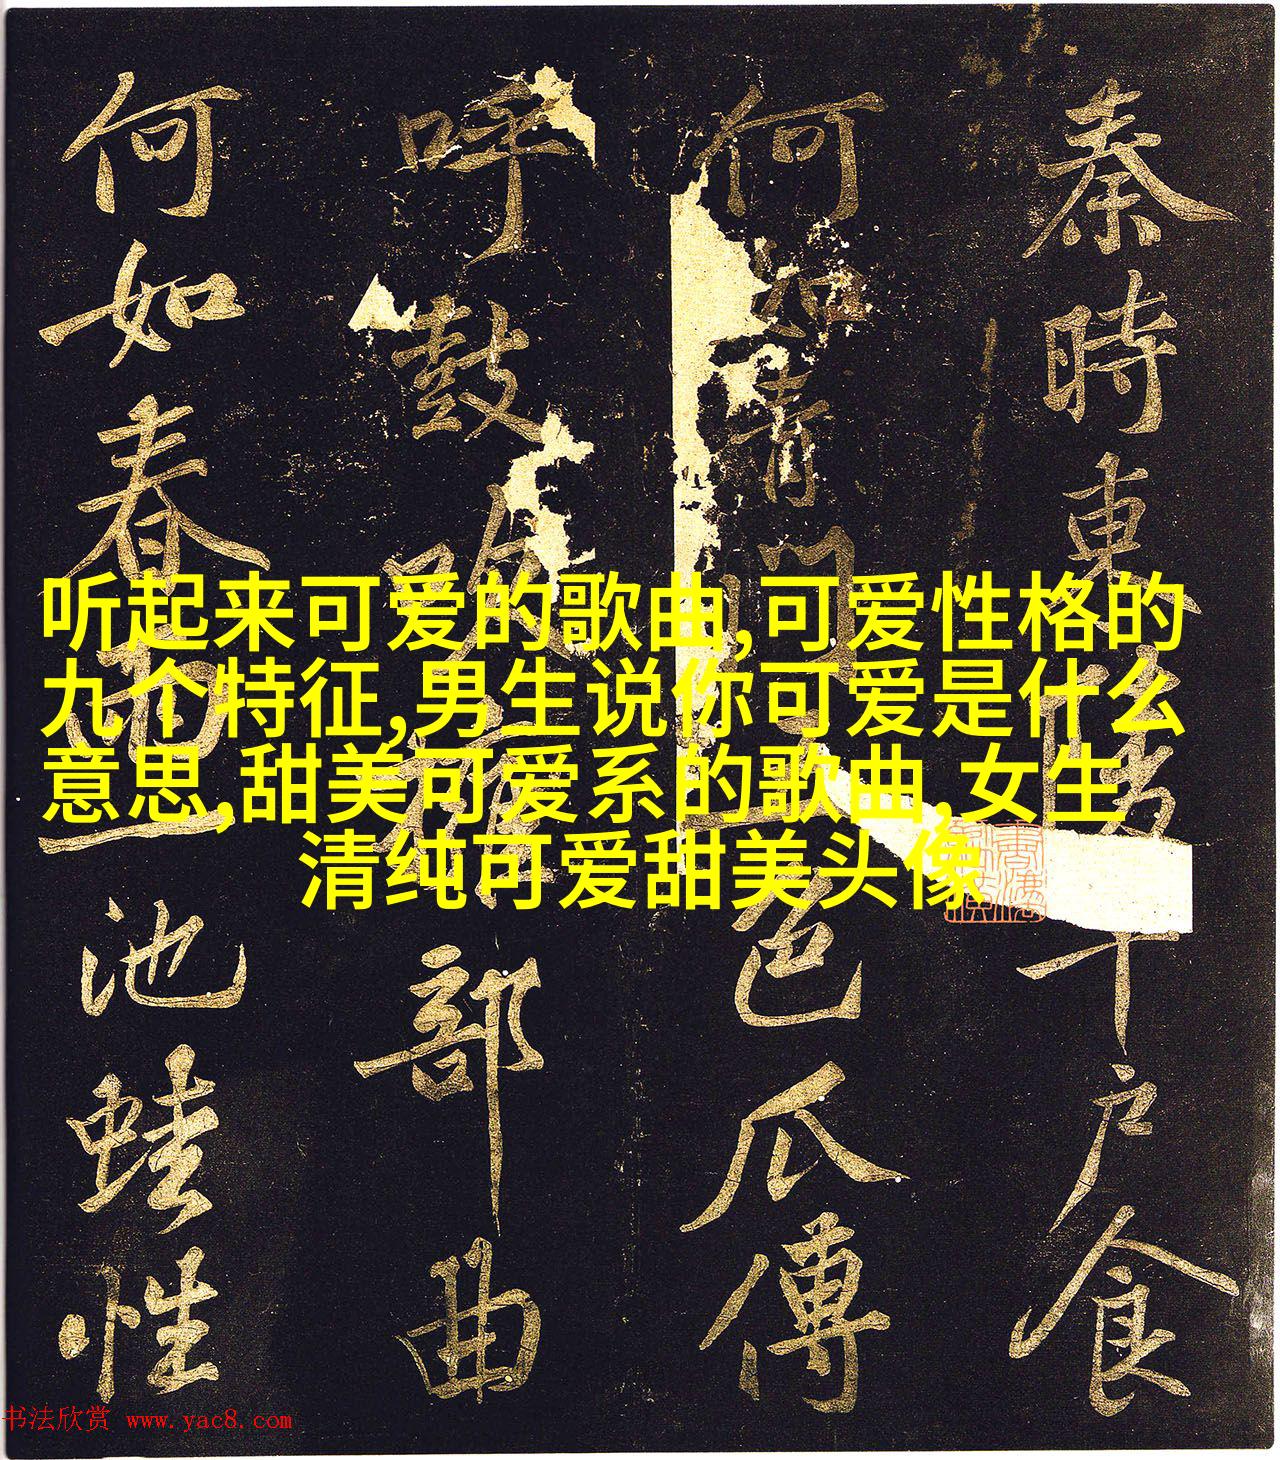 秦時東陵千戶食
何如青門色瓜傳
呼鼓吹擁部曲
何如春一池蛙性
听起来可爱的歌曲,可爱性格的
九个特征,男生说你可爱是什么
意思,甜美可爱系的歌曲,女生
清纯可爱甜美头像
书法欣赏 www.yac8.com